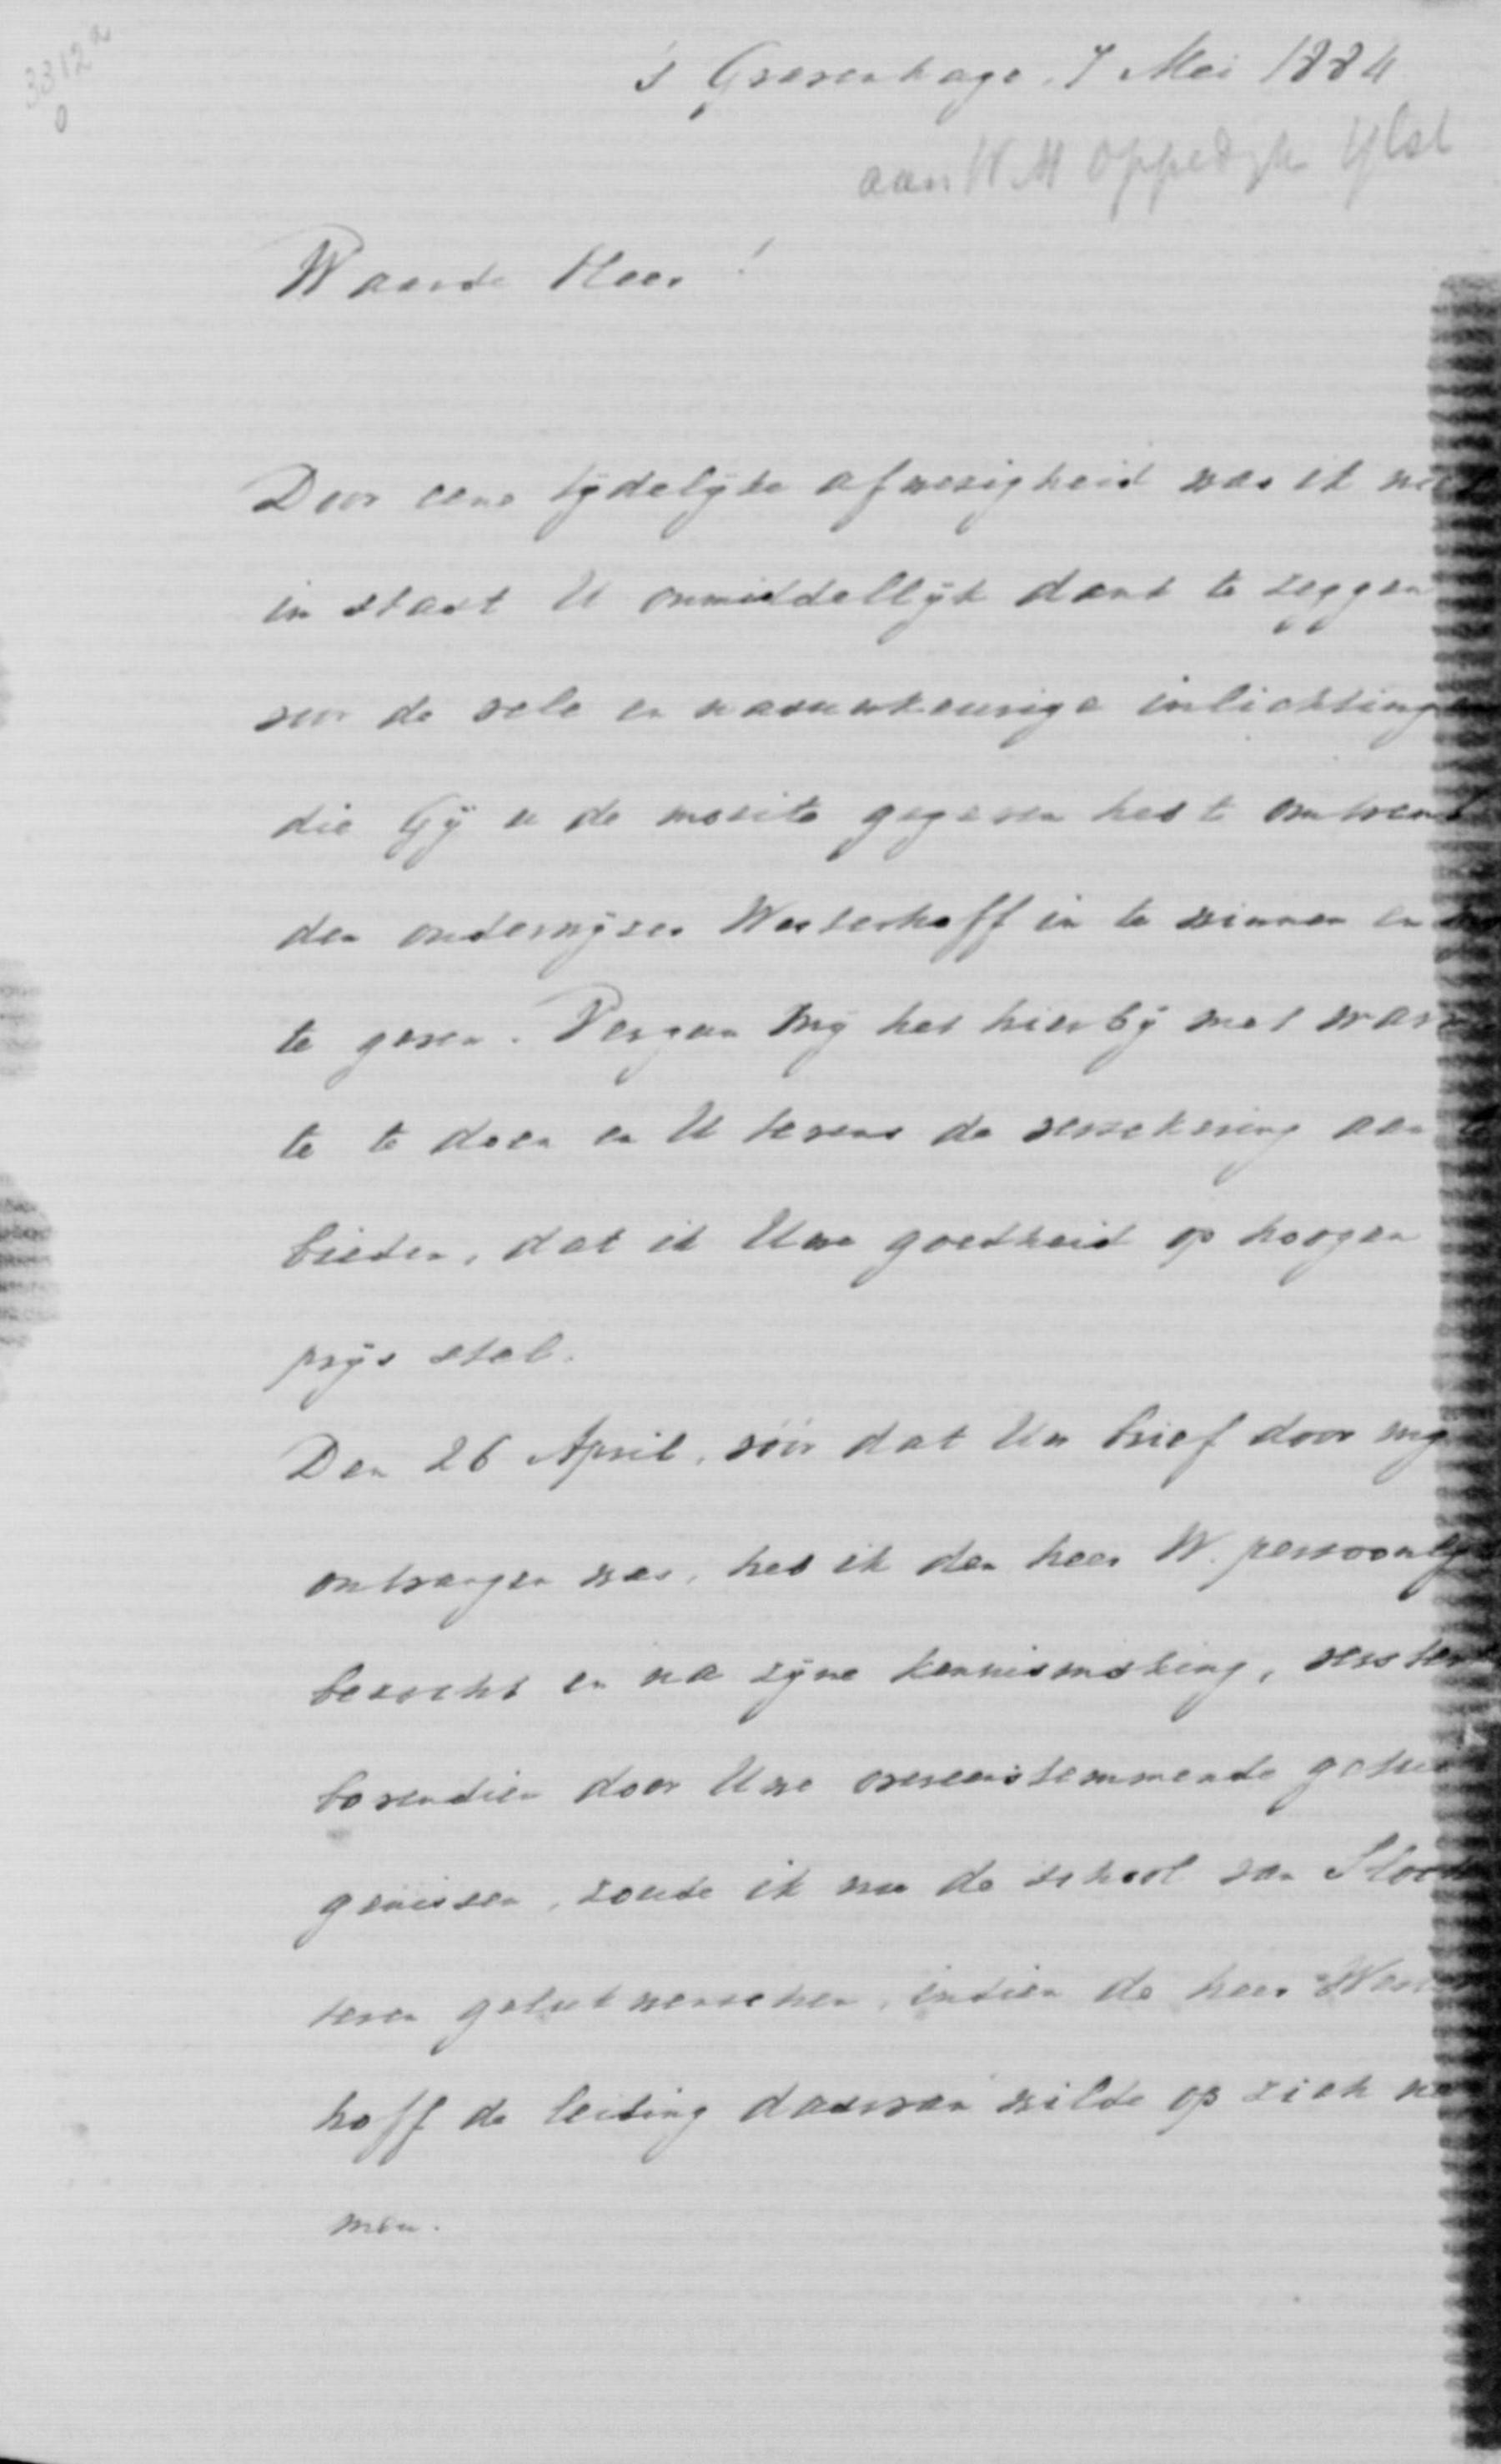 3312a
0
's Gravenhage. 7 Mei 1884
aan W M Oppedijk Ylst
Waarde Heer!
Door eene tijdelijke afwezigheid was ik niet
in staat U onmiddellijk dank te zeggen
voor de vele en naauwkeurige inlichtingen
die Gij u de moeite gegeven hebt omtrent
den onderwijzer Westerhoff in te winnen en
te geven. Vergun mij het hierbij met
te te doen en U tevens de verzekering aan te
bieden, dat ik Uwe goedheid op hoogen
prijs stel.
Den 26 April, vóór dat Uw brief door mij
ontvangen was, heb ik den heer W. persoonlijk
bezocht en na zijne kennismaking, versterkt
bovendien door Uwe overeenstemmende getui
genissen, zoude ik nu de school van Sloo
teren gelukwenschen, indien de heer Wester
hoff de leiding daarvan wilde op zich ne
men.